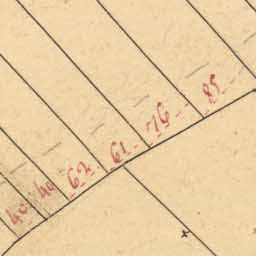 40
40
62
61
76
85